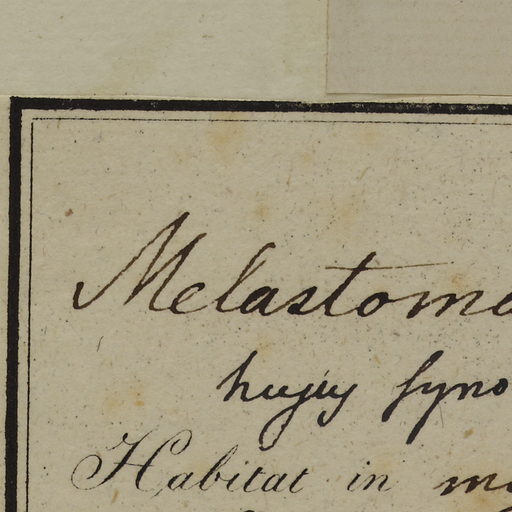 Melastoma
hujus syno
Habitat in m